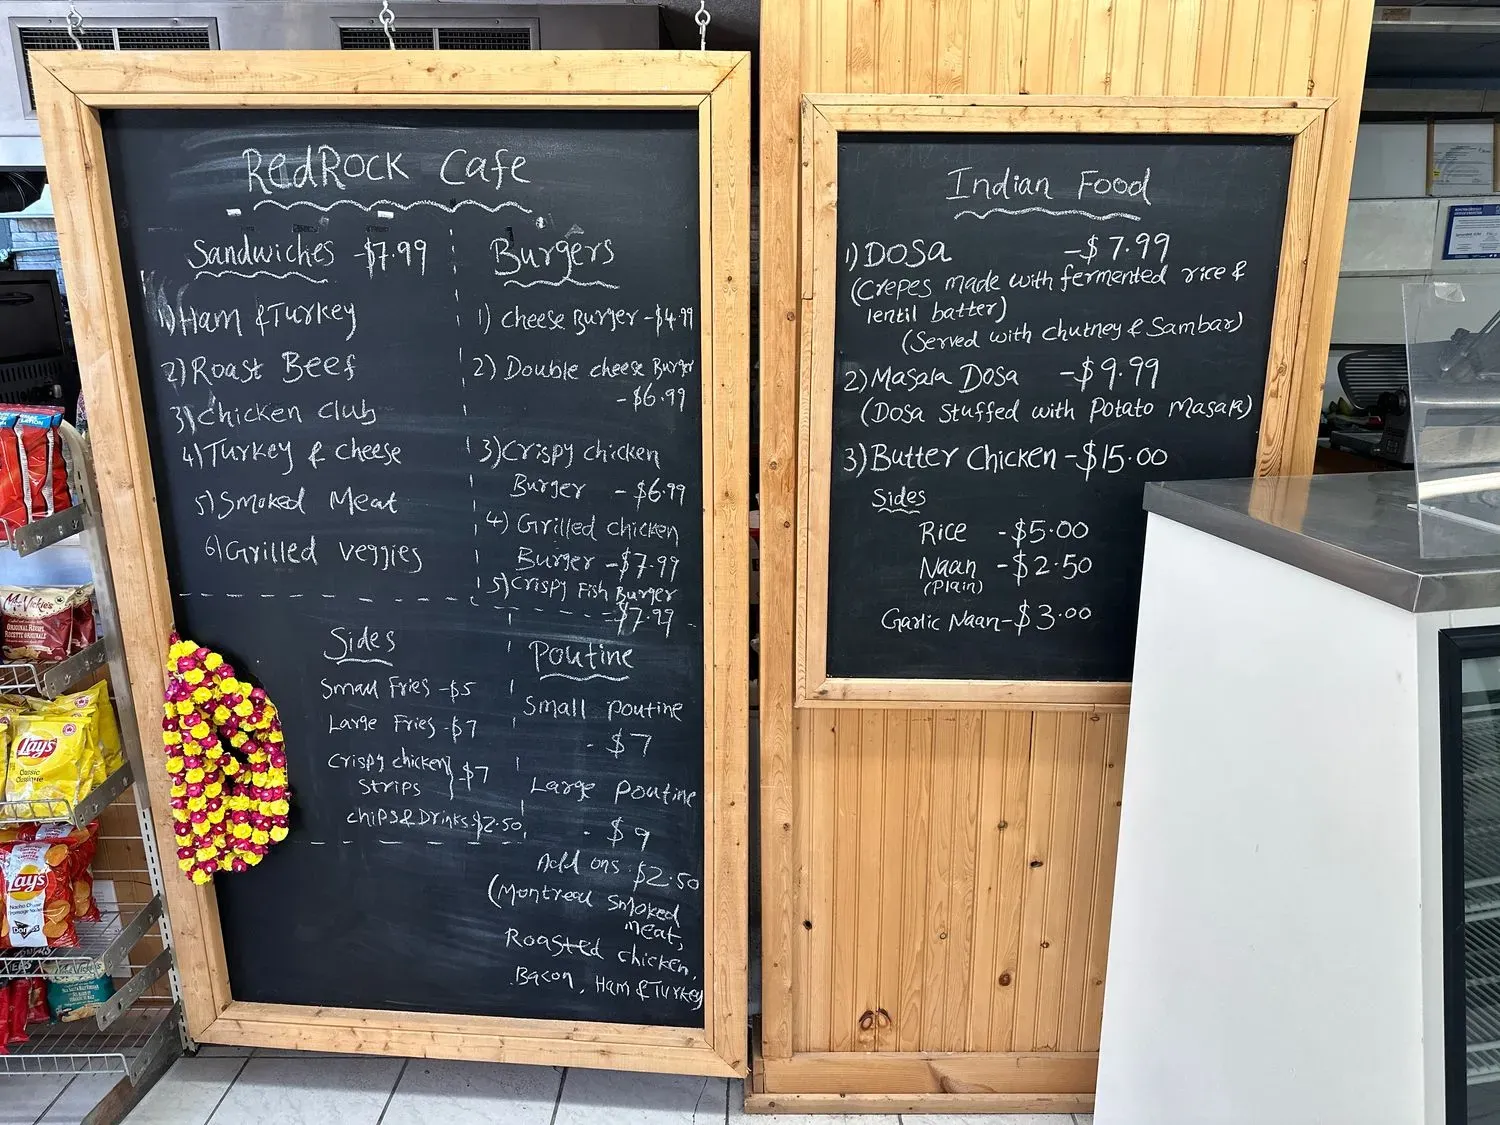 RedRock Cafe
Sandwiches -$7.99
1) Ham & Turkey
2) Roast Beef
3) Chicken Club
4) Turkey & cheese
5) Smoked Meat
6) Grilled veggies
Burgers
1) cheese Burger -$4.99
2) Double cheese Burger
-$6.99
3) Crispy chicken
Burger -$6.99
4) Grilled chicken
Burger -$7.99
5) Crispy Fish Burger
-$7.99
Sides
Small Fries -$5
Large Fries -$7
Crispy chicken
strips -$7
chips & Drinks-$2.50
Poutine
Small poutine
- $7
Large poutine
- $9
Add ons $2.50
(Montreal smoked
meat,
Roasted chicken,
Bacon, Ham & Turkey
Indian Food
1) DOSA -$7.99
(Crepes made with fermented rice &
lentil batter)
(Served with chutney & Sambar)
2) Masala Dosa -$9.99
(Dosa stuffed with Potato Masala)
3) Butter Chicken -$15.00
Sides
Rice -$5.00
Naan -$2.50
(Plain)
Garlic Naan-$3.00
Miss Vickie's
ORIGINAL RECIPE
RECETTE ORIGINALE
Lay's
Classic
Classique
Lay's
Doritos